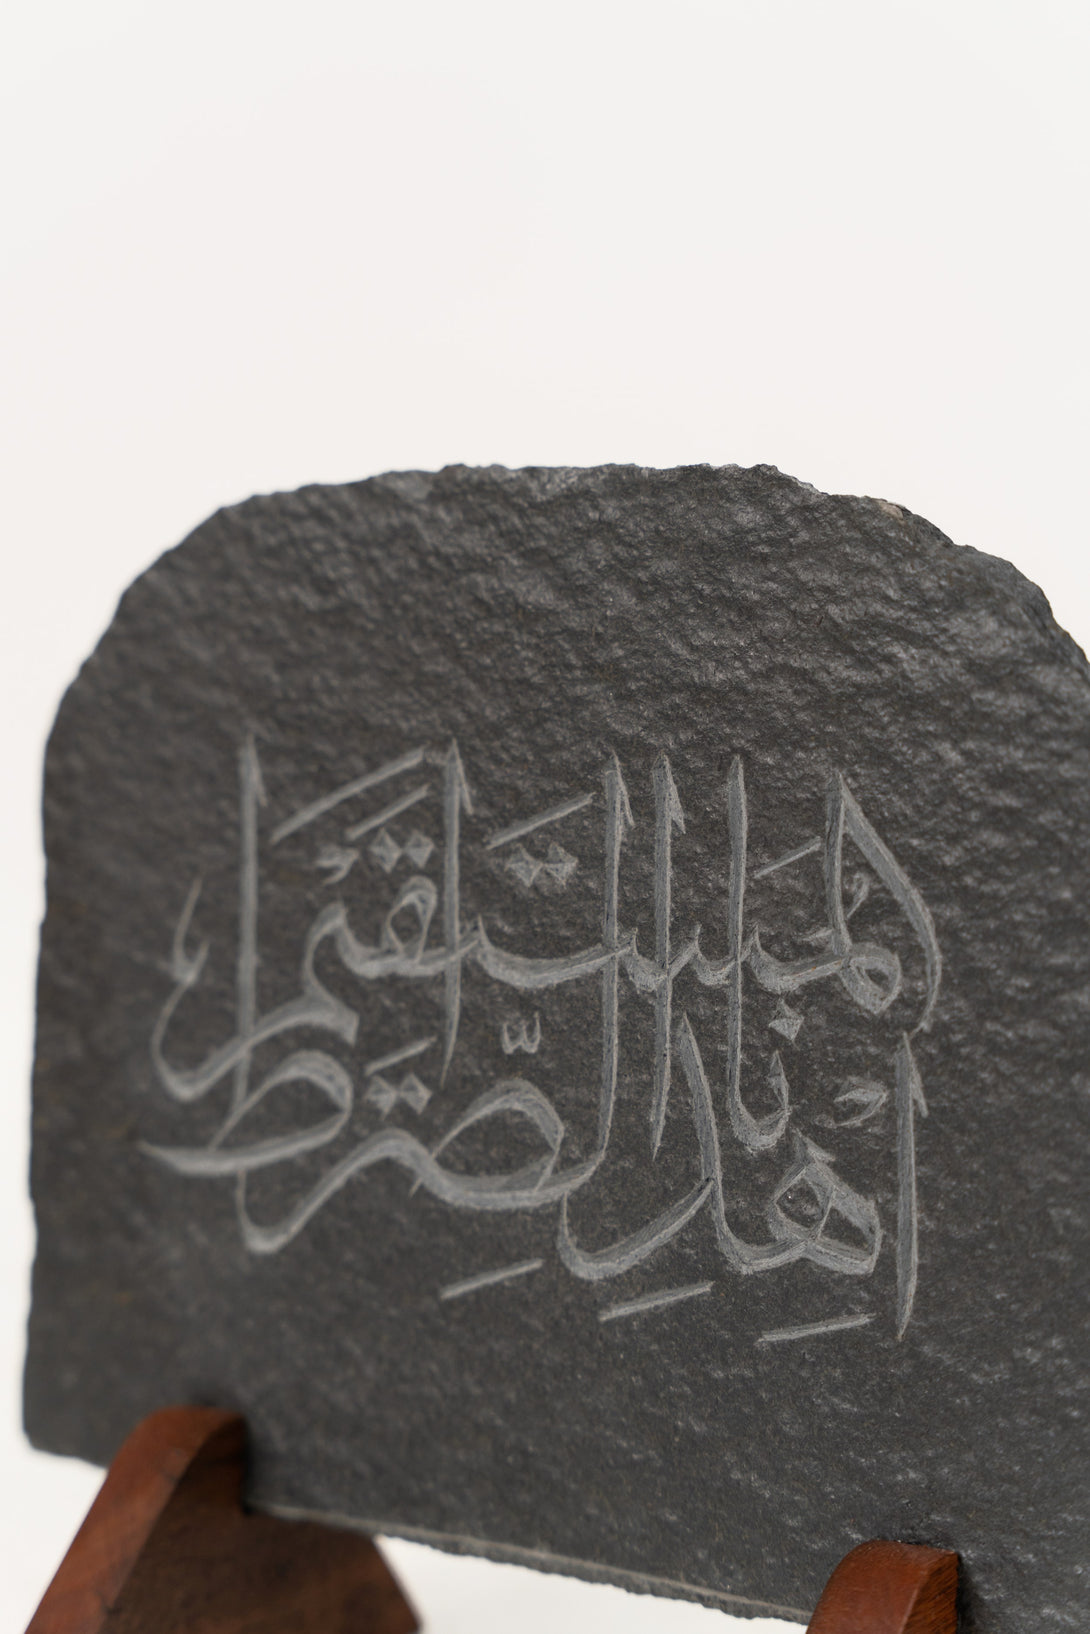 اِهْدِنَا الصِّرَاطَ
الْمُسْتَقِيمَ